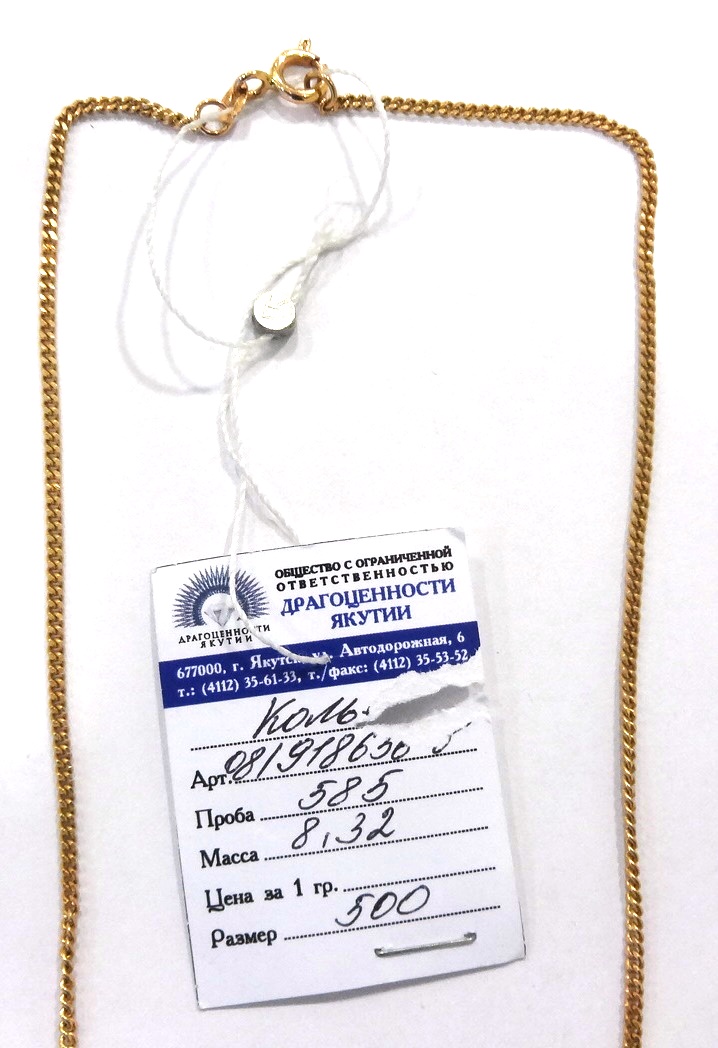 ОБЩЕСТВО С ОГРАНИЧЕННОЙ
ОТВЕТСТВЕННОСТЬЮ
ДРАГОЦЕННОСТИ
ЯКУТИИ
ДРАГОЦЕННОСТИ
ЯКУТИИ
677000, г. Якутск, ул. Автодорожная, 6
т.: (4112) 35-61-33, т./факс: (4112) 35-53-52
Коль
Арт.
Проба 585
Масса 8,32
Цена за 1 гр.
Размер 500